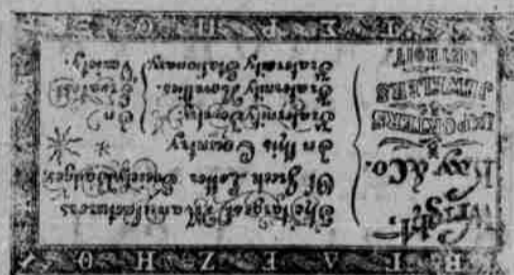 Wright,
Kay & Co.
IMPORTERS
&
JEWELERS
DETROIT.
The Largest Manufacturers
Of Greek Letter Society Badges
In this Country
Fraternity Jewelry.
Fraternity Novelties.
Fraternity Stationary.
In
Greatest
Variety.